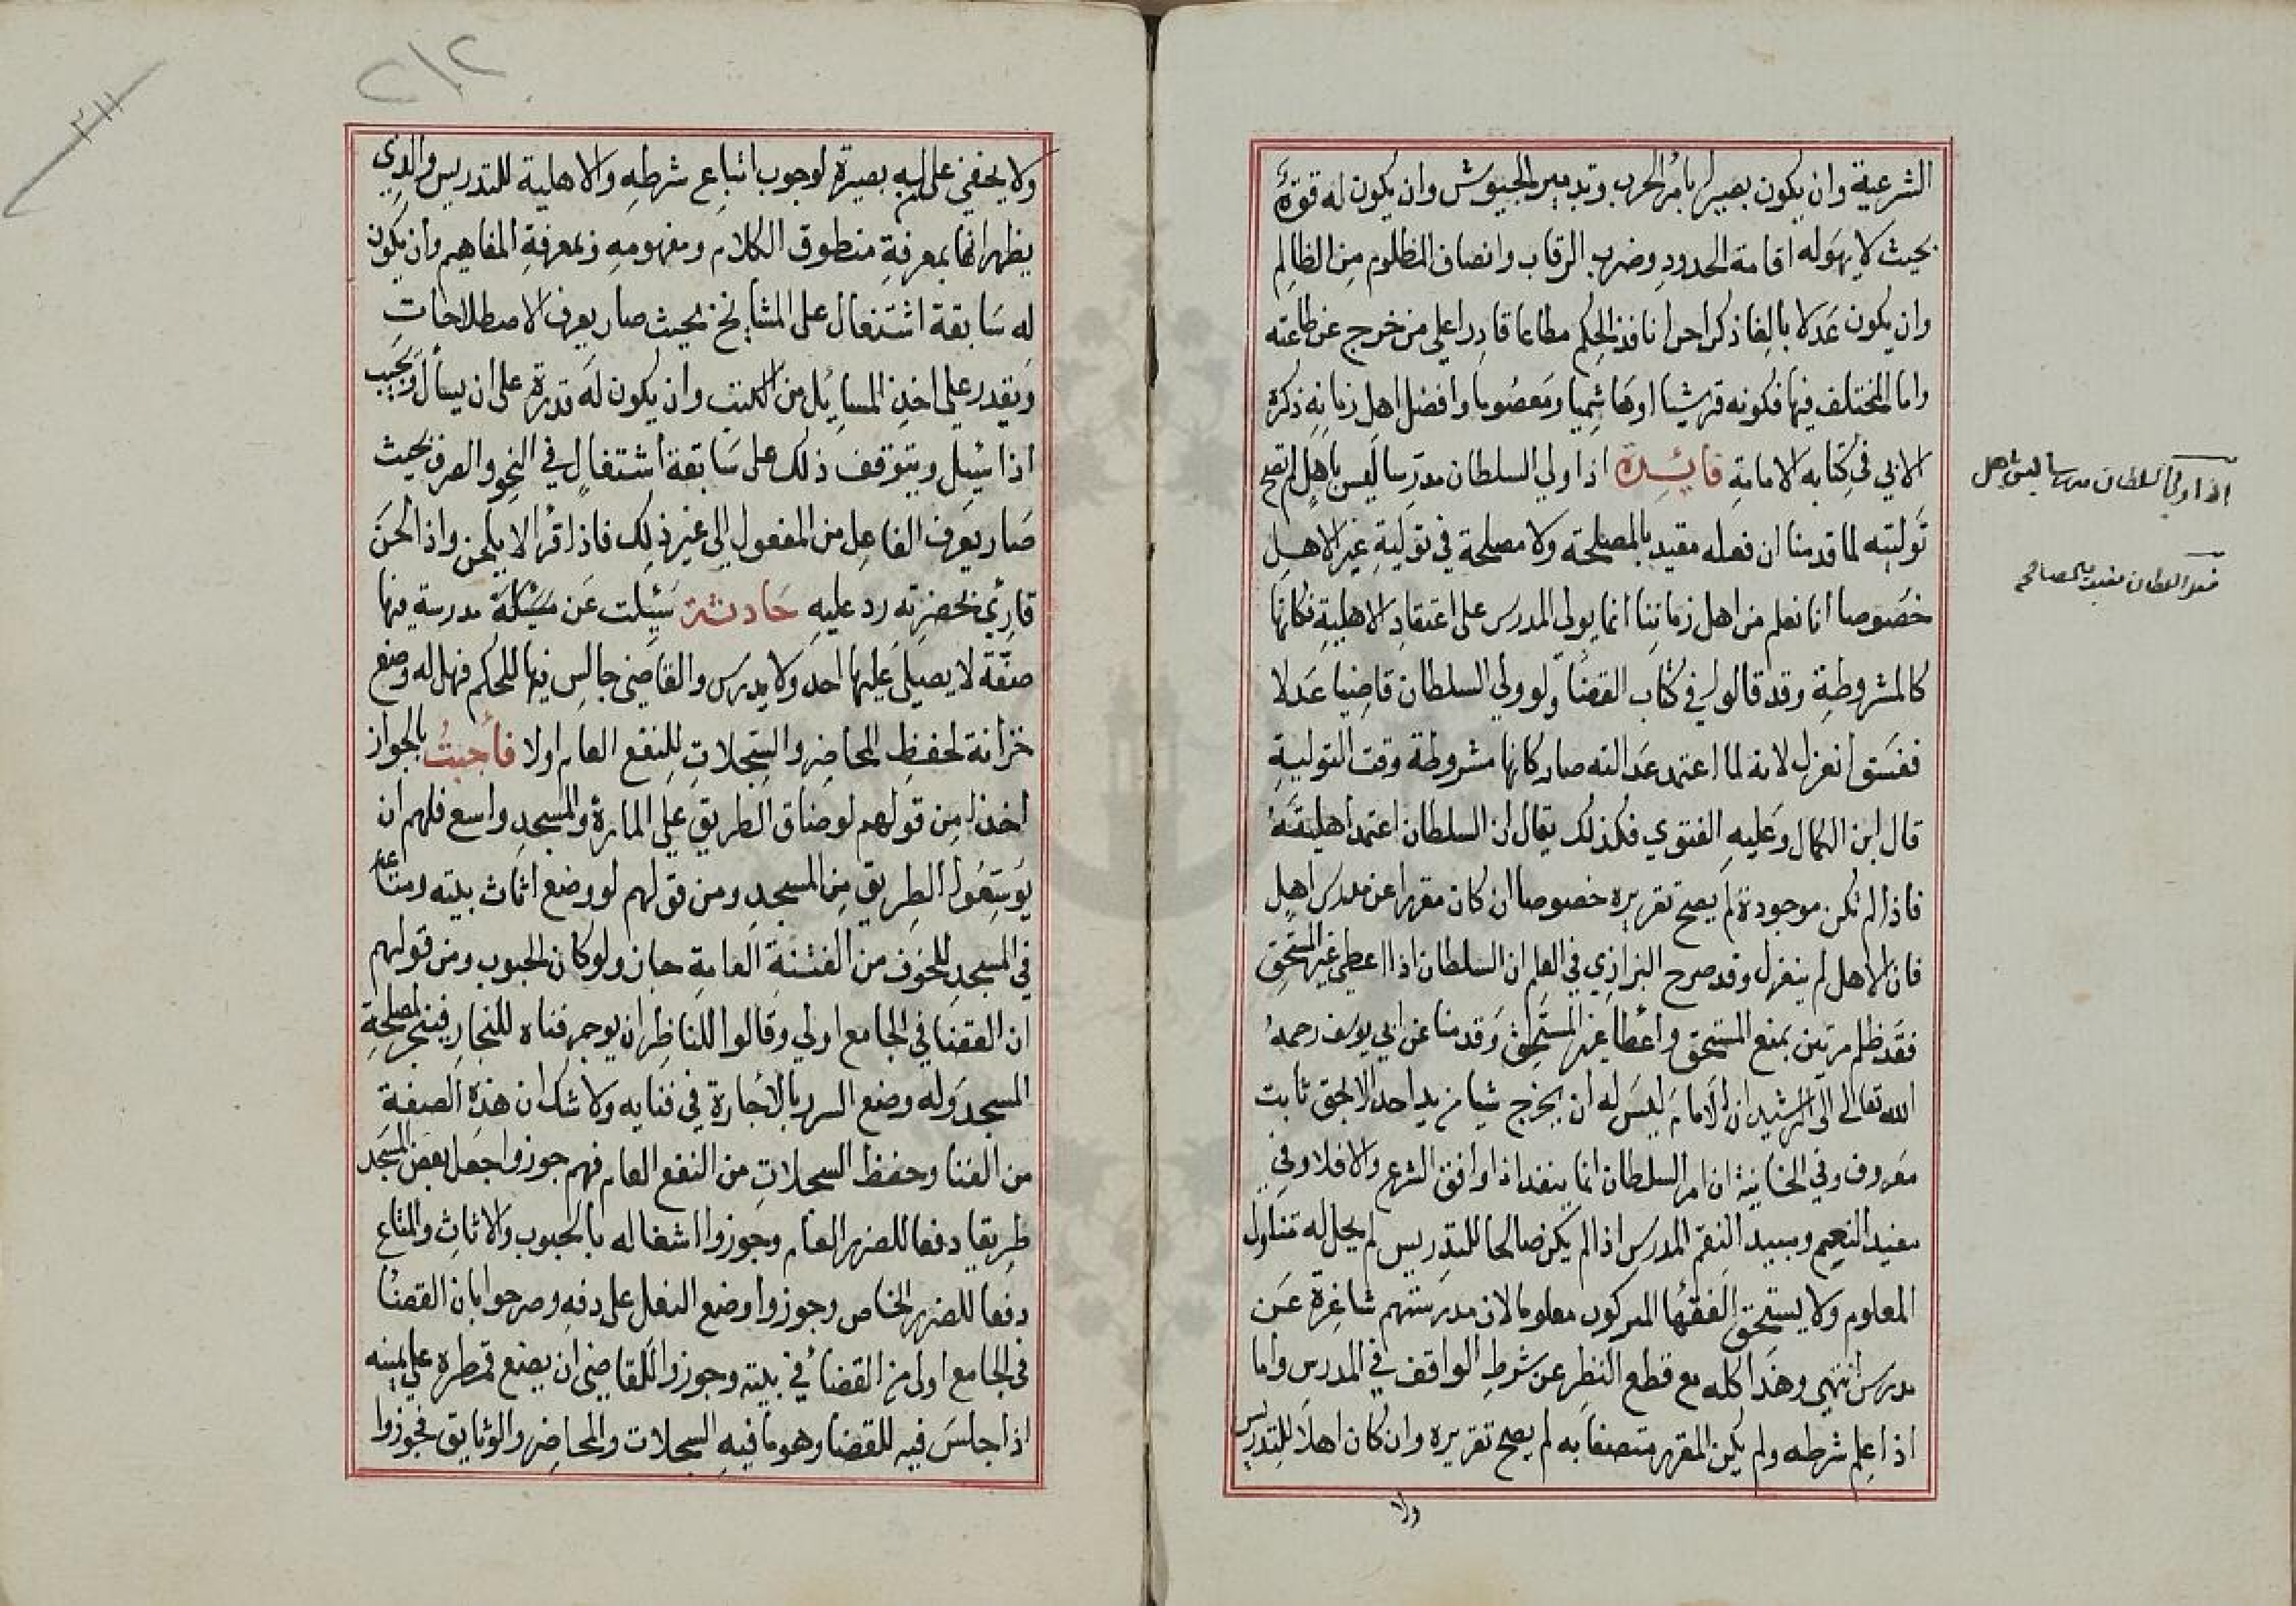 الشرعية وان يكون بصيرا بامر الحرب وتدبير الجيوش وان يكون له قوة
بحيث لا يهوله اقامة الحدود وضرب الرقاب وانصاف المظلوم من الظالم
وان يكون عدلا بالغا ذكرا حرا نافذ الحكم مطاعا قادرا على من خرج عن طاعته
واما المختلف فيها فكونه قرشيا او هاشميا ومعصوما وافضل اهل زمانه ذكره
الابي في كتابه الامامة فايدة اذا ولي السلطان مدرسا ليس باهل لم تصح
توليته لما قدمنا ان فعله مقيد بالمصلحة ولا مصلحة في تولية غير الاهل
خصوصا انا نعلم من اهل زماننا انما يولي المدرس على اعتقاد الاهلية فكانها
كالمشروطة وقد قالوا في كتاب القضا ولو ولي السلطان قاضيا عدلا
ففسق انعزل لانه لما اعتمد عدالته صار كانها مشروطة وقت التولية
قال ابن الكمال وعليه الفتوي فكذلك يقال ان السلطان اعتمد اهليته
فاذا لم تكن موجودة لم يصح تقريره خصوصا ان كان مقررا عن مدرس اهل
فان الاهل لم ينعزل وقد صرح البزازي في العلم ان السلطان اذا اعطى غير المستحق
فقد ظلم مرتين بمنع المستحق واعطا غير المستحق وقدمنا عن ابي يوسف رحمه
الله تعالى الى الرشيد ان الامام ليس له ان يخرج شيا من يد احد الا بحق ثابت
معروف وفي الخانية ان امر السلطان انما ينفذ اذا وافق الشرع والا فلا وفي
مفيد النعيم ومبيد النقم المدرس اذا لم يكن صالحا للتدريس لم يحل له تناول
المعلوم ولا يستحق الفقها المركون معلوما لان مدرستهم شاغرة عن
مدرس انتهي وهذا كله مع قطع النظر عن شرط الواقف في المدرس واما
اذا علم شرطه ولم يكن المقرر متصفا به لم يصح تقريره وان كان اهلا للتدريس
ولا
اذا ولي السلطان مدرسا ليس باهل
فعل السلطان مقيد بالمصالح
٢١٢
٢١١
ولا يخفي على ليه بصيرة لوجوب اتباع شرطه والاهلية للتدريس والذي
يظهر انها بمعرفة منطوق الكلام ومفهومه وبمعرفة المفاهيم وان يكون
له سابقة اشتغال على المشايخ بحيث صار يعرف الاصطلاحات
ويقدر على اخذ المسايل من الكتب وان يكون له قدرة على ان يسأل ويجيب
اذا سيل ويتوقف ذلك على سابقة اشتغال في النحو والصرف بحيث
صار يعرف الفاعل من المفعول الى غير ذلك فاذا قرأ لا يلحن واذا لحن
قارئ بحضرته رد عليه حادثة سيلت عن مسئلة مدرسة فيها
صفة لا يصلى عليها احد ولا يدرس والقاضي جالس فيها للحكم فهل له وضع
خزانة لحفظ المحاضر والسجلات للنفع العام اولا فأجبت بالجواز
اخذا من قولهم لو ضاق الطريق على المارة والمسجد واسع فلهم ان
يوسعوا الطريق من المسجد ومن قولهم لو وضع اثاث بيته ومتاعه
في المسجد للخوف من الفتنة العامة جاز ولو كان الحبوب ومن قولهم
ان القضا في الجامع اولي وقالوا للناظر ان يوجر فناه للتجار فيتجر لمصلحة
المسجد وله وضع السرر بالاجارة في فنايه ولا شك ان هذه الصفة
من الفنا وحفظ السجلات من النفع العام فهم جوزوا جعل بعض المسجد
طريقا دفعا للضرر العام وجوزوا اشغاله بالحبوب والاثاث والمتاع
دفعا للضرر الخاص وجوزوا وضع النعل على دفه وصرحوا بان القضا
في الجامع اولى من القضا في بيته وجوزوا للقاضي ان يضع قمطرة على يمينه
اذا جلس فيه للقضا وهو ما فيه السجلات والمحاضر والوثايق فجوزوا